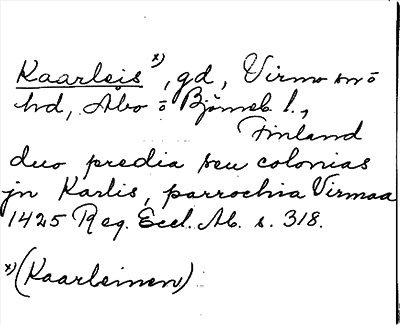 Kaarleis x), gd, Virmo sn o
hd, Åbo o Björneb. l.,
Finland
duo predia seu colonias
jn Karlis, parrochia Virmaa
1425 Reg. Eccl. Ab. s. 318.
x) (Kaarleinen)